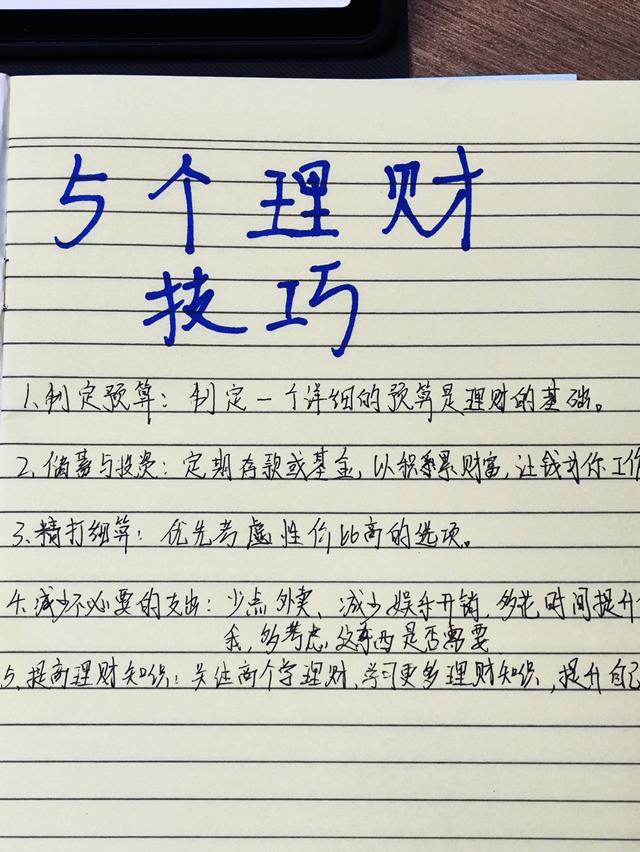 5个理财
技巧
1、制定预算：制定一个详细的预算是理财的基础。
2、储蓄与投资：定期存款或基金，以积累财富，让钱为你工作
3、精打细算：优先考虑性价比高的选项。
4、减少不必要的支出：少点外卖、减少娱乐开销，多花时间提升
我，多考虑这东西是否需要
5、提高理财知识：关注商个学理财，学习更多理财知识，提升自己